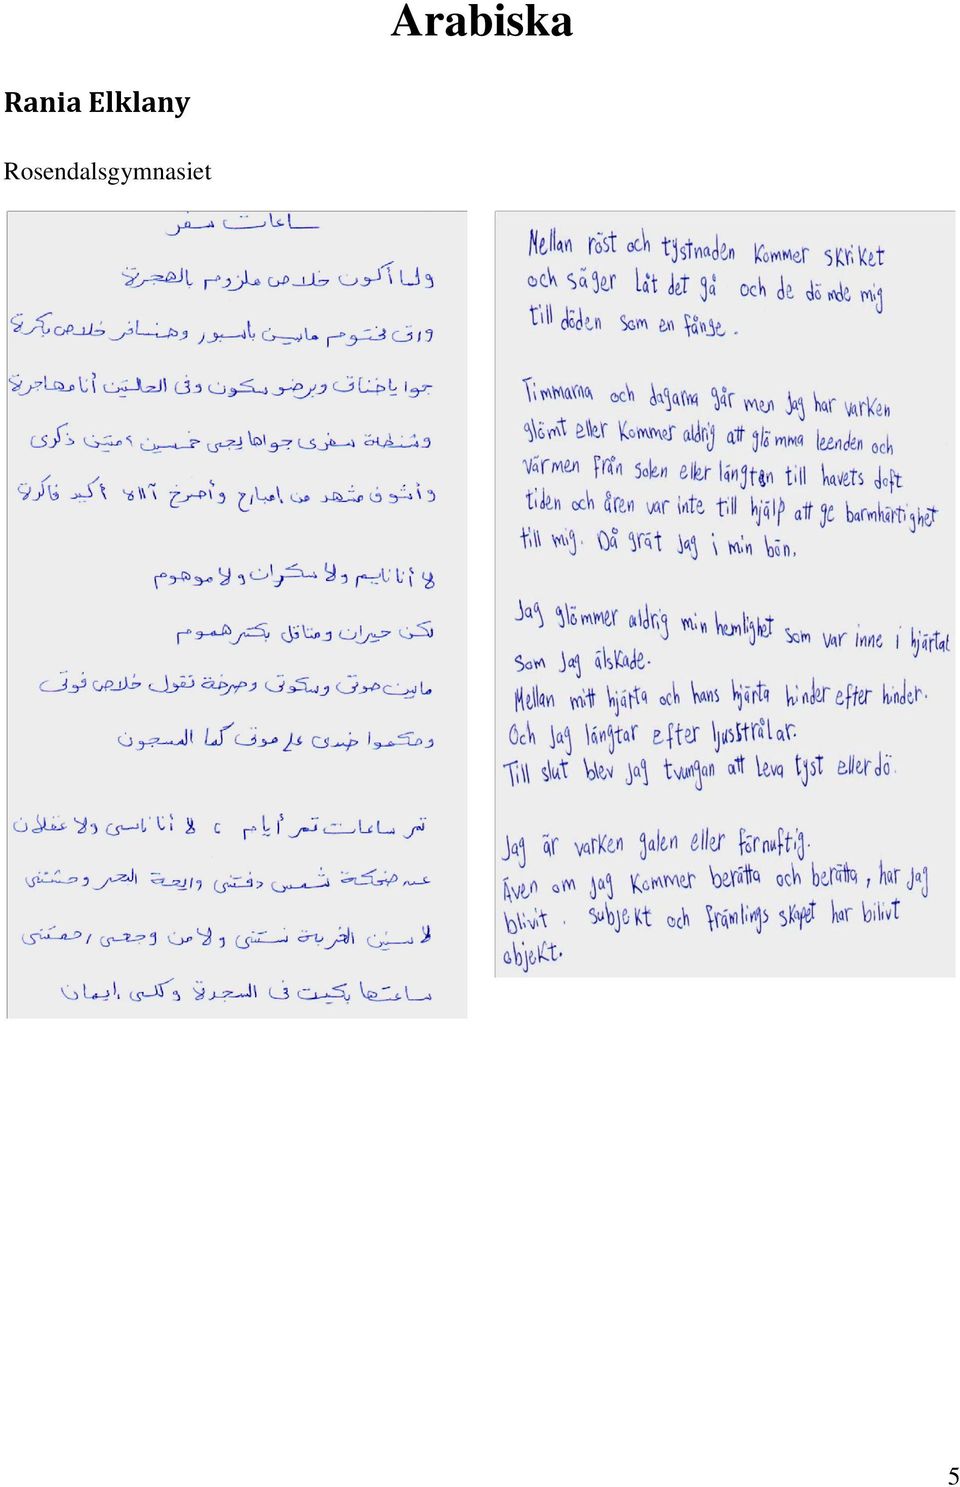 Arabiska
Rania Elklany
Rosendalsgymnasiet
ساعات سفر
ولما أكون خلاص ملزوم بالهجرة
ورق مختوم مابين باسبور وهنسافر خلاص بكرة
جوايا خناق وبرضو سكون وفى الحالتين أنا مهاجرة
وشنطة سفرى جواها يجى خمسين ؟ متين ذكرى
وأشوف مشهد من إمبارح وأصرخ آااه أكيد فاكرة
لا أنا نايم ولا سكران ولا موهوم
لكن حيران ومتاقل بكتر هموم
مابين صوتى وسكوتى وصرخة تقول خلاص فوتى
وحكموا ضدى على موتى كما المسجون
تمر ساعات تمر أيام ، لا أنا ناسى ولا غفلان
عن ضحكة شمس دفتنى وريحة البحر وحشتنى
لا سنين الغربة نستنى ولا من وجعى رحمتنى
ساعتها بكيت فى السجدة وكلى إيمان
Mellan röst och tystnaden kommer skriket
och säger låt det gå och de dömde mig
till döden som en fånge.
Timmarna och dagarna går men jag har varken
glömt eller kommer aldrig att glömma leenden och
värmen från solen eller längtan till havets doft
tiden och åren var inte till hjälp att ge barmhärtighet
till mig. Då grät jag i min bön.
Jag glömmer aldrig min hemlighet som var inne i hjärtat
som jag älskade.
Mellan mitt hjärta och hans hjärta hinder efter hinder.
Och jag längtar efter ljusstrålar.
Till slut blev jag tvungan att leva tyst eller dö.
Jag är varken galen eller förnuftig.
Även om jag kommer berätta och berätta, har jag
blivit. subjekt och främlingsskapet har bilivt
objekt.
5